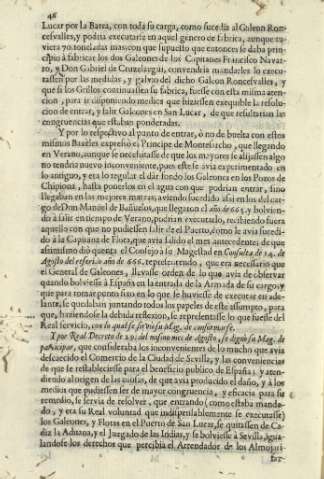 46
Lucar por la Barra, con toda su carga, como sucedia al Galeon Ron-
cesvalles, y podria executarse en aquel genero de fabrica, aunque tu-
viera 70. toneladas mas; con que supuesto que entonces se daba prin-
cipio à fabricar los dos Galeones de los Capitanes Francisco Navar-
ro, y Don Gabriel de Cruzelaegui, convendria mandarles lo execu-
tassen por las medidas, y galvo del dicho Galeon Roncesvalles, y
que si los Grillos continuassen su fabrica, fuesse con esta misma aten-
cion, para lo qual
cion de entrar, y salir Galeones en San Lucar, de que resultarian las
congruencias que estaban ponderadas.
Y por lo respectivo al punto de entrar, ò no de buelta con estos
mismos Baxeles expressò el Principe de Montesarcho, que llegando
en Verano, aunque se necessitasse de que los mayores se alijassen algo
no tendria nuevo inconveniente, pues este se avia experimentado en
lo antiguo, y era lo regular el dàr fondo los Galeones en los Pozos de
Chipiona, hasta ponerlos en el agua con que podrian entrar, sino
llegaban en las mejores mareas, aviendo sucedido assi en los del car-
go de Don Manuel de Bañuelos, que llegaron el año de 665. y bolvien-
do à salir en tiempo de Verano, podria executarlo, recibiendo fuera
aquello con que no pudiessen salir de el Puerto, como le avia sucedi-
do à la Capitana de Flota, que avia salido el mes antecedente; de que
assimismo diò quenta el Consejo à su Magestad en Consulta de 14. de
Agosto del referido año de 666. representando, que era necessario que
el General de Galeones, llevasse orden de lo que avia de observar
quando bolviesse à España en la entrada de la Armada de su cargo, y
que para tomar punto fixo en lo que se huviesse de executar en ade-
lante, se quedaban juntando todos los papeles de este assumpto, para
que, haziendole la debida reflexion, se representasse lo que fuesse del
Real servicio, con lo qual se sirviò su Mag. de conformarse.
Y por Real Decreto de 29. del mismo mes de Agosto, se dignò su Mag. de
participar, que considerando los inconvenientes de lo mucho que avia
descaecido el Comercio de la Ciudad de Sevilla, y las conveniencias
de que se restableciesse para el beneficio publico de España; y aten-
diendo al origen de las causas, de que avia producido el daño, y à los
medios que pudiessen ser de mayor congruencia, y eficacia para su
remedio, se servia de resolver, que entrando (como estaba manda-
do, y era su Real voluntad que indispensablemente se executasse)
los Galeones, y Flotas en el Puerto de San Lucar, se quitassen de Ca-
diz la Aduana, y el Juzgado de las Indias, y se bolviesse à Sevilla, igua-
landose los derechos que percibia el Arrendador de los Almoxari-